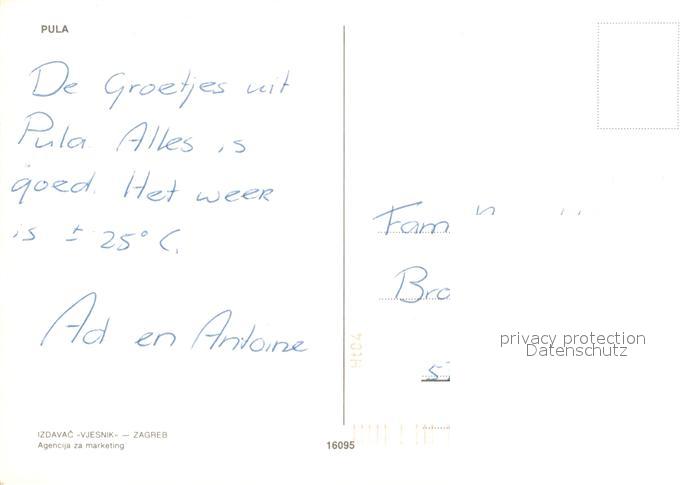 PULA
De Groetjes uit
Pula. Alles is
goed. Het weer
is ± 25° C.
Ad en Antoine
Fam
Bro
privacy protection
Datenschutz
IZDAVAČ «VJESNIK» — ZAGREB
Agencija za marketing
16095